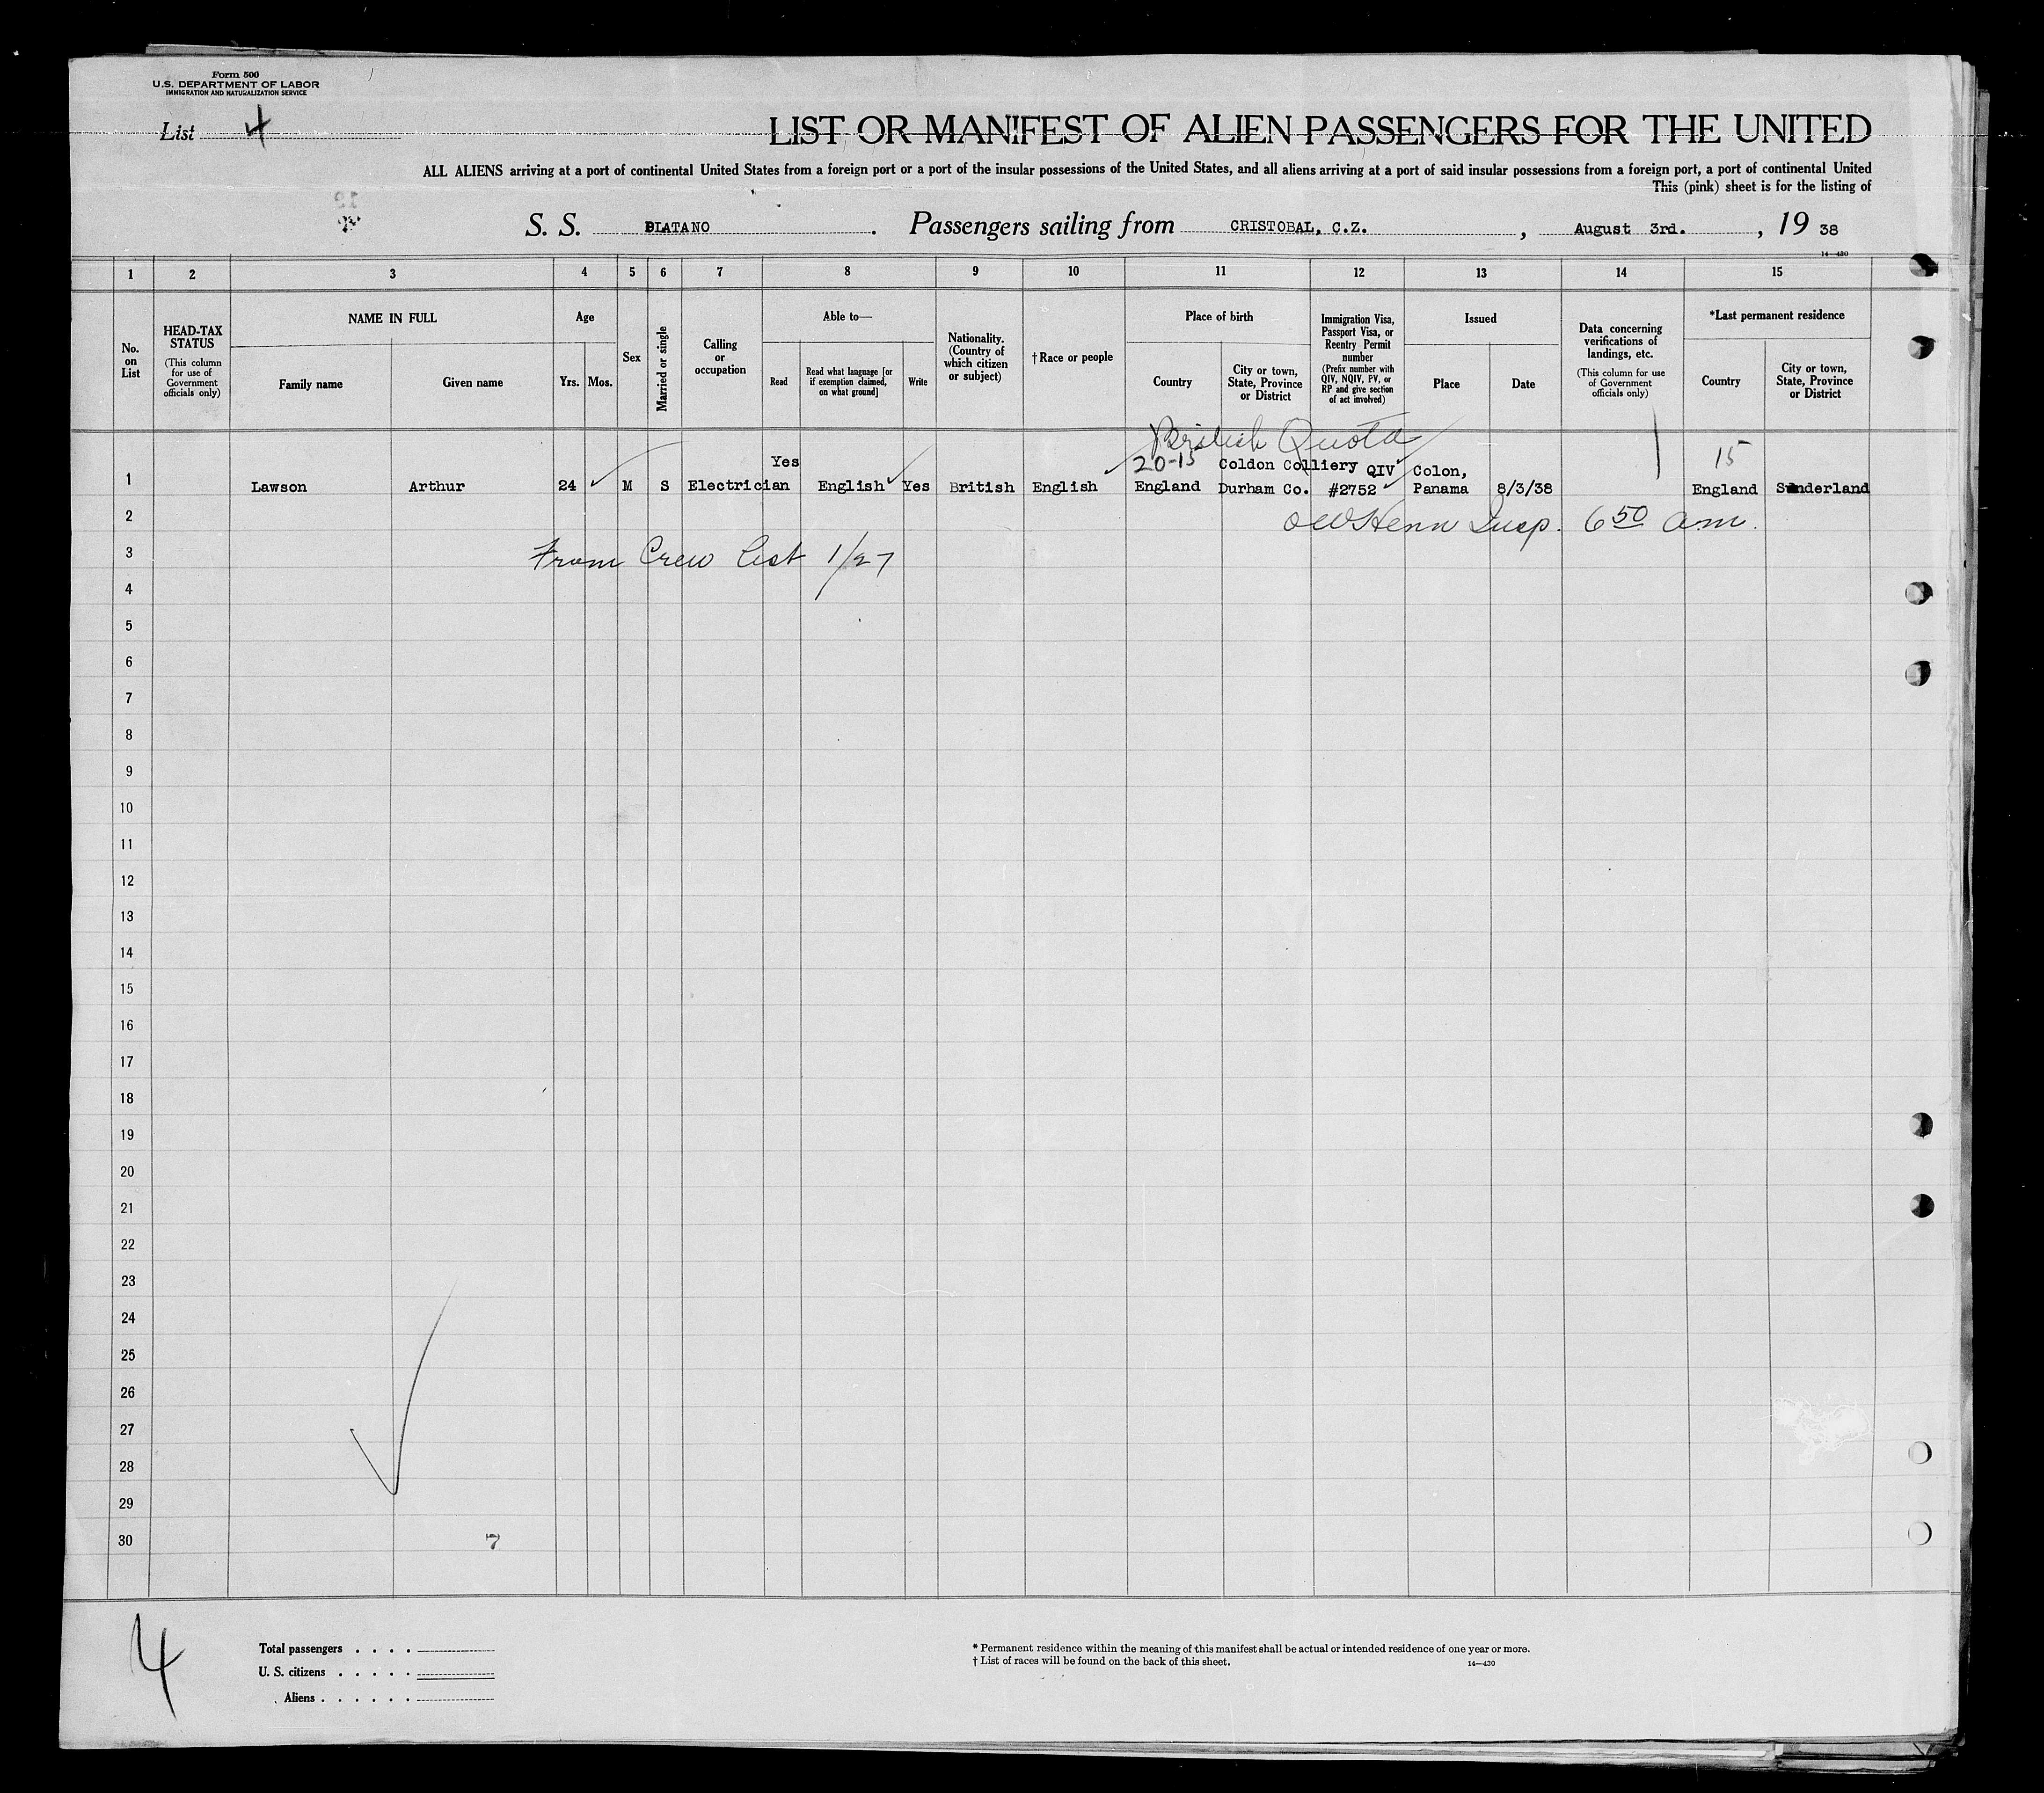 Form 500
U.S. DEPARTMENT OF LABOR
IMMIGRATION AND NATURALIZATION SERVICE
List 4
LIST OR MANIFEST OF ALIEN PASSENGERS FOR THE UNITED
ALL ALIENS arriving at a port of continental United States from a foreign port or a port of the insular possessions of the United States, and all aliens arriving at a port of said insular possessions from a foreign port, a port of continental United
This (pink) sheet is for the listing of
S. S. PLATANO . Passengers sailing from CRISTOBAL, C.Z. , August 3rd. , 19 38
14—430
1 2 3 4 5 6 7 8 9 10 11 12 13 14 15
No. on List
HEAD-TAX STATUS
(This column for use of Government officials only)
NAME IN FULL
Family name
Given name
Age
Yrs.
Mos.
Sex
Married or single
Calling or occupation
Able to—
Read
Read what language [or if exemption claimed, on what ground]
Write
Nationality. (Country of which citizen or subject)
† Race or people
Place of birth
Country
City or town, State, Province or District
Immigration Visa, Passport Visa, or Reentry Permit number
(Prefix number with QIV, NQIV, PV, or RP and give section of act involved)
Issued
Place
Date
Data concerning verifications of landings, etc.
(This column for use of Government officials only)
*Last permanent residence
Country
City or town, State, Province or District
British Quota
Yes 20-15 Coldon Colliery QIV Colon, 15
1 Lawson Arthur 24 M S Electrician English Yes British English England Durham Co. #2752 Panama 8/3/38 England Sunderland
2 Insp. 6 50 a.m.
3 From Crew list 1/27
4
5
6
7
8
9
10
11
12
13
14
15
16
17
18
19
20
21
22
23
24
25
26
27
28
29
30 7
4
Total passengers . . . .
U. S. citizens . . . . .
Aliens . . . . . .
* Permanent residence within the meaning of this manifest shall be actual or intended residence of one year or more.
† List of races will be found on the back of this sheet. 14—430